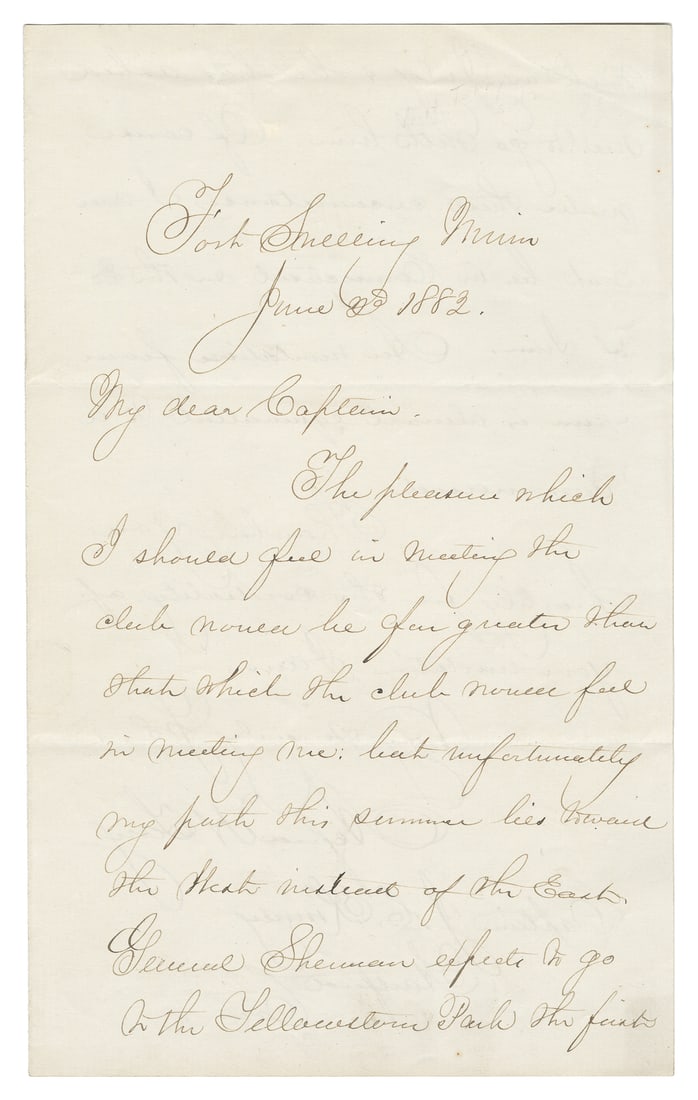 Fort Snelling Minn
June 2D 1882.
My dear Captain.
The pleasure which
I should feel in meeting the
club would be far greater than
that which the club would feel
in meeting me: but unfortunately
my path this summer lies toward
the West instead of the East.
General Sherman expects to go
to the Yellowstone Park the first